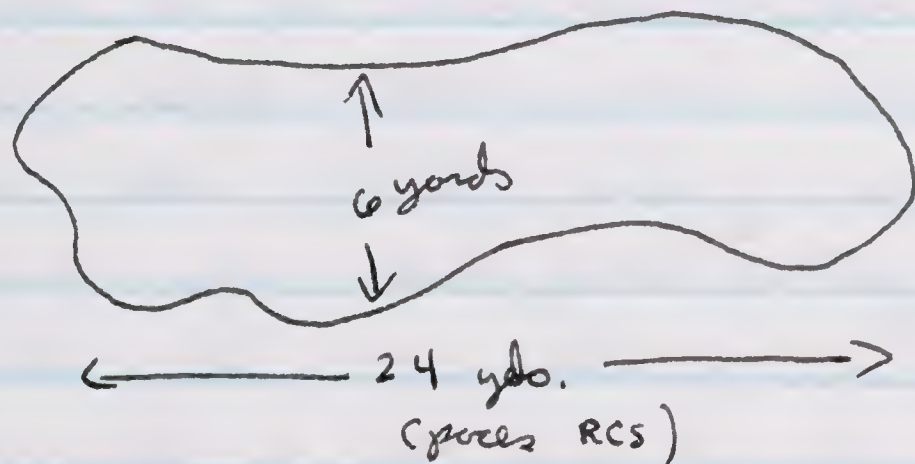 6 yards
24 yds.
(paces RCS)